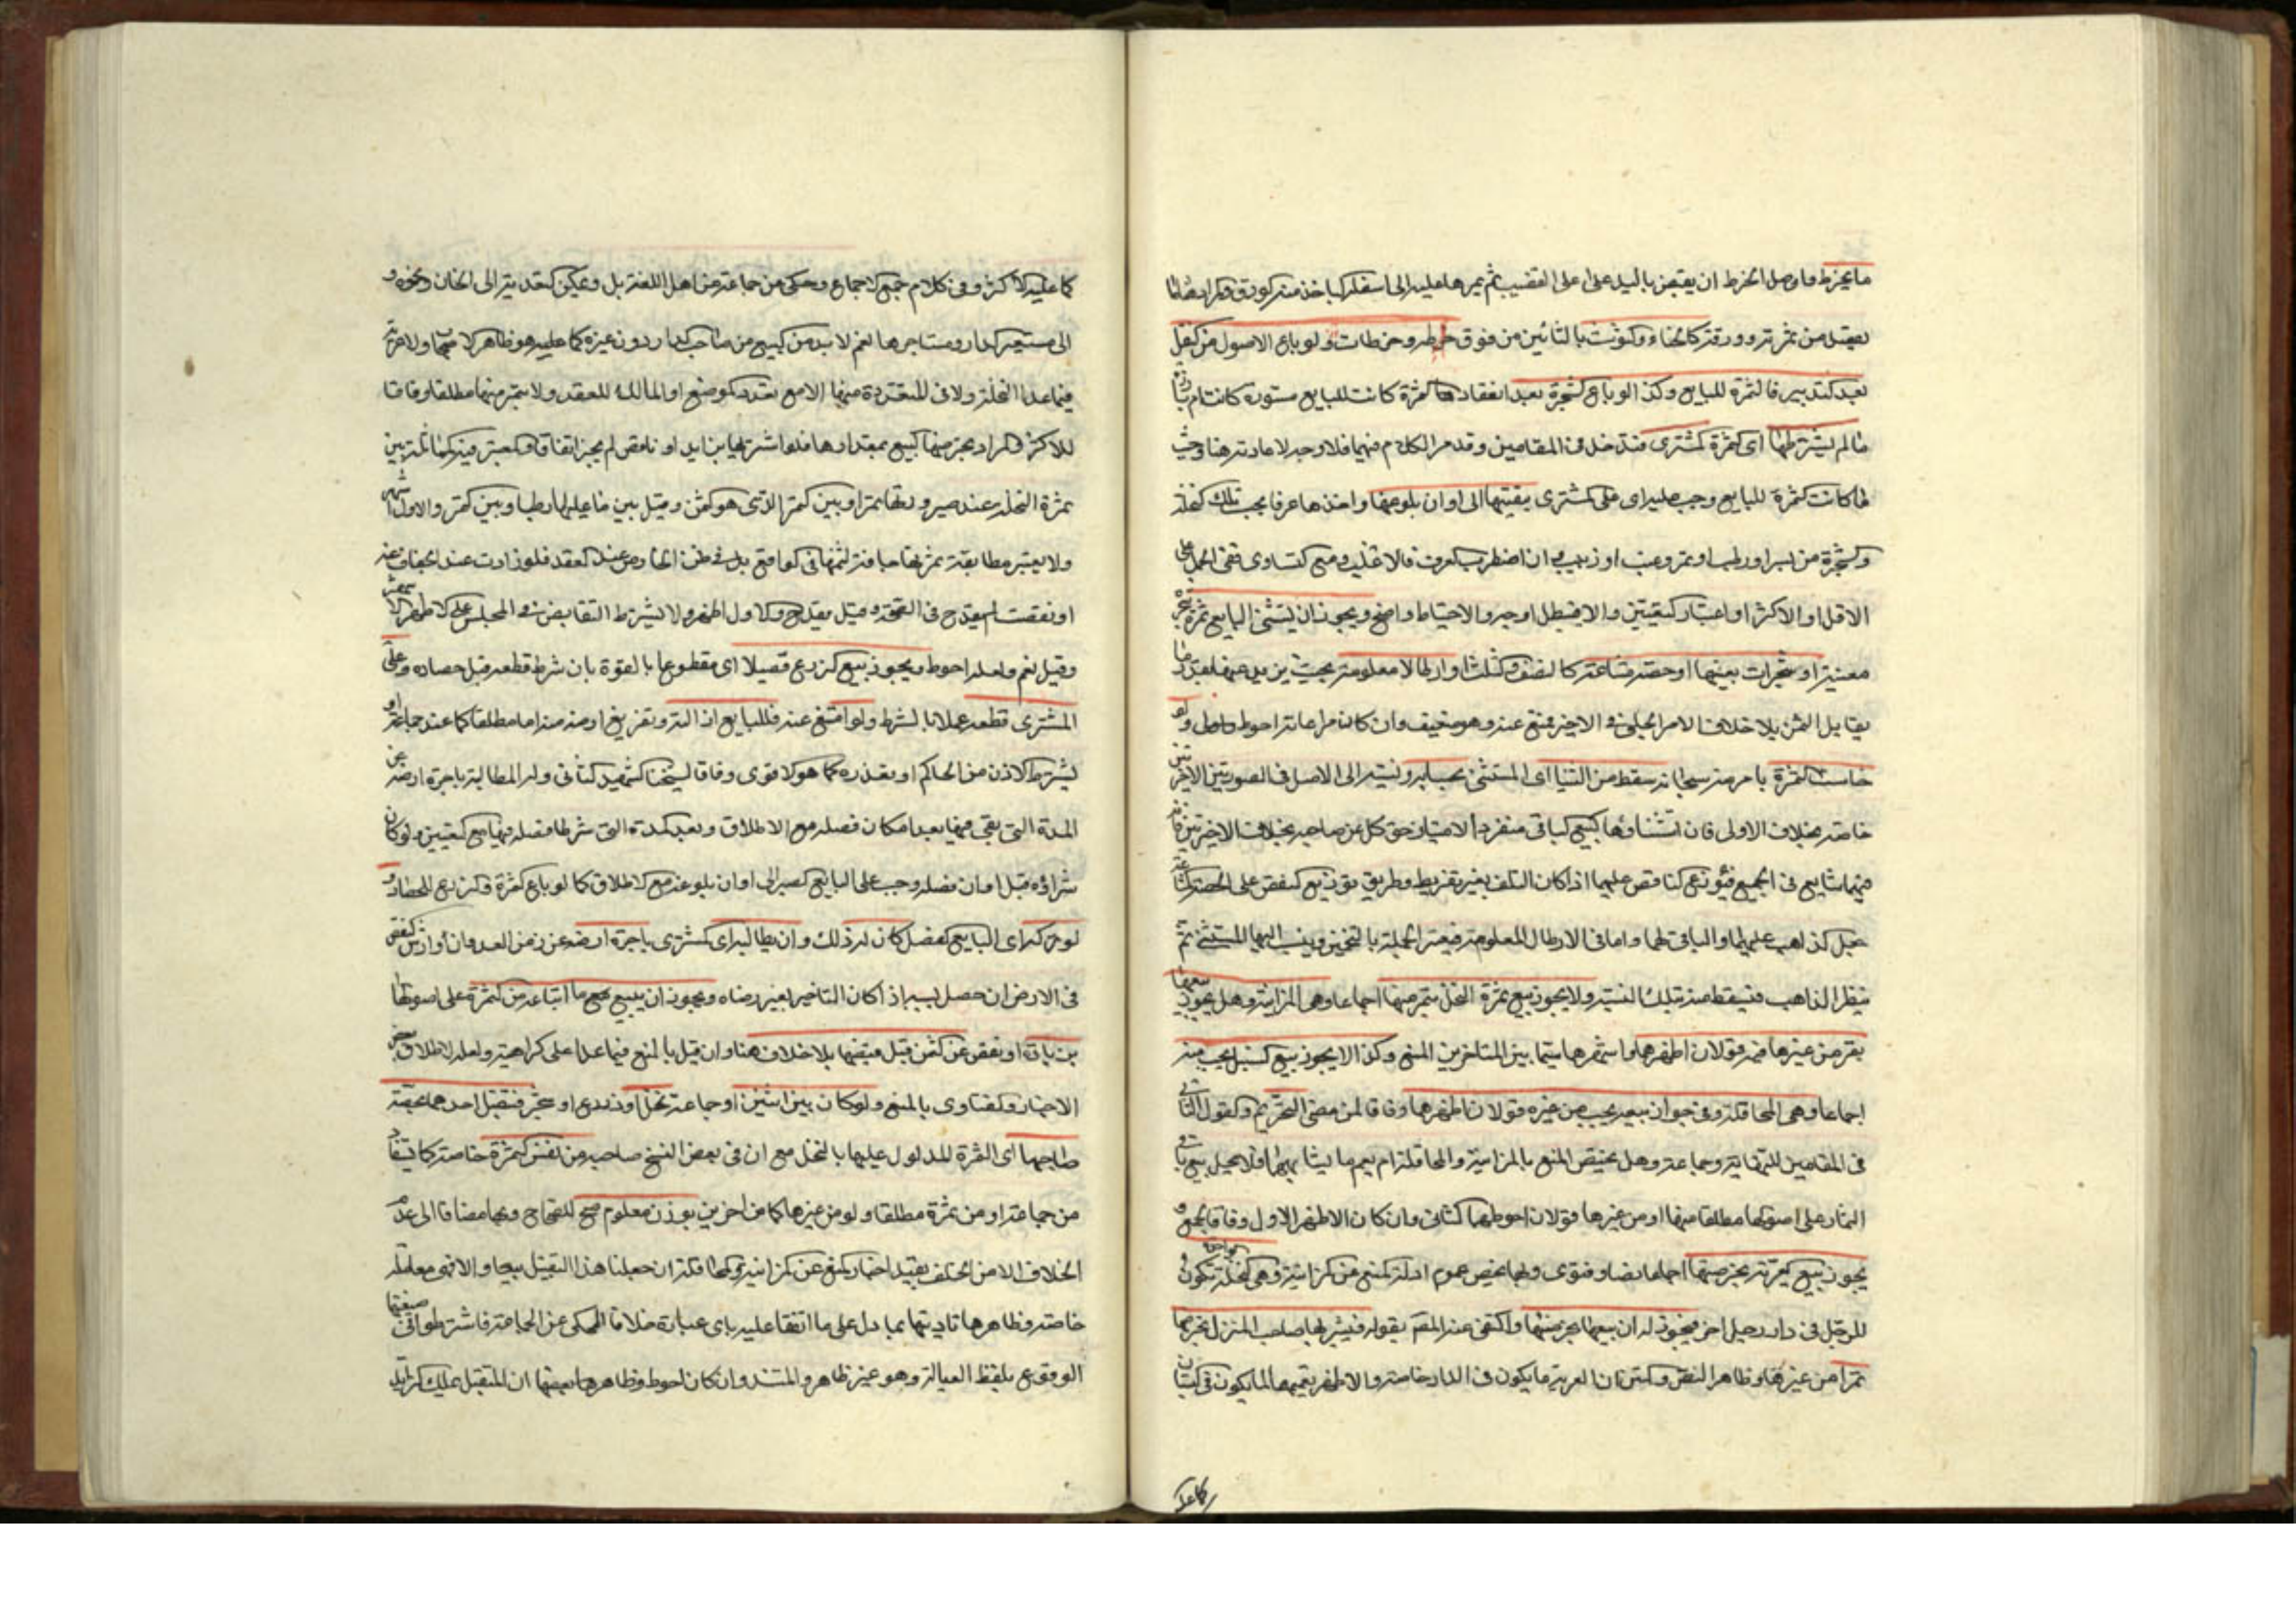 ما يخرط واصل الخرط ان يقبض باليد على اعلى القضيب ثم يمرها عليه الى اسفله لياخذ عنه الورق والمراد هنا ما
يقصد من ثمرته وورقه كالحناء والتوت بالتائين من فوق خرطة وخرطات ولو باع الاصول من النخل
بعد التدبير فالثمرة للبايع وكذا لو باع الشجرة بعد انعقاد الثمرة كانت للبايع مستورة كانت ام بارزة
ما لم يشترطها اى الثمرة المشترى فتدخل فى المقامين وقد مر الكلام فيهما فلا وجه لاعادته هنا وحيث
ما كانت الثمرة للبايع وجب عليه اى على المشترى تبقيتها الى اوان بلوغها واخذها عرفا بحسب تلك النخلة
والشجرة من بسر او رطب او تمر وعنب او زبيب وان اضطرب العرف فالاغلب ومع التساوى ففى الحمل على
الاقل او الاكثر او اعتبار التعيين والا فيبطل اوجه والاحتياط واضح ويجوز ان يستثنى البايع ثمرة شجرة
معينة او شجرات بعينها او حصة مشاعة كالنصف والثلث او ارطالا معلومة بحيث يزيد عنها بقدر ما
يقابل الثمن بلا خلاف الا من الحلبى فى الاخير فمنع عنه وهو ضعيف وان كان مراعاته احوط واولى ولو
خاست الثمرة بامر منه سبحانه سقط من الثنيا اى المستثنى بحسابه ونسبته الى الاصل فى الصورتين الاخيرتين
خاصة بخلاف الاولى فان استثناؤها كبيع الباقى منفردا لامتياز حق كل عن صاحبه بخلاف الاخيرتين فانه
فيهما شايع فى الجميع فيوزع الناقص عليهما اذا كان التلف بغير تفريط وطريق توزيع النقص على الحصة المشاعة
جعل الذاهب عليهما والباقى لهما واما فى الارطال المعلومة فيعتبر الجملة بالتخمين وينسب اليها المستثنى ثم
ينظر الذاهب فيسقط منه بتلك النسبة ولا يجوز بيع ثمرة النخل بتمر منها اجماعا وهى المزابنة وهل يجوز بيعها
بتمر من غيرها فيه قولان اظهرهما واشهرهما سيما بين المتاخرين المنع وكذا لا يجوز بيع السنبل بحب منه
اجماعا وهى المحاقلة وفى جواز بيعه بحب من غيره قولان اظهرهما وفاقا لمن مضى التحريم والقول الثانى
فى المقامين للنهاية وجماعة وهل يختص المنع بالمزابنة والمحاقلة ام يعم ما يشابههما فلا يحل بيع باقى
الثمار على اصولها مطلقا منها او من غيرها قولان احوطهما الثانى وان كان الاظهر الاول وفاقا لجمع و
يجوز بيع العرية بخرصها اجماعا نصا وفتوى وبها يخص عموم ادلة المنع عن المزابنة وهى النخلة تكون
للرجل فى دار رجل اخر فيجوز له ان يبيعها بخرصها واكتفى عنه المصنف بقوله فيشتريها صاحب المنزل بخرصها
تمرا من غيرها وظاهر النص والمتن ان العرية ما يكون فى الدار خاصة والاظهر تعميمها لما يكون فى البستان
كما عليه
كما عليه الاكثر وفى كلام جمع الاجماع وحكى عن جماعة من اهل اللغة بل ويمكن التعدية الى الخان ونحوه و
الى مستعير الدار ومستاجرها نعم لا بد من البيع من صاحب الدار دون غيره كما عليه هو ظاهر الاصحاب ولا عرية
فيما عدا النخلة ولا فى المتعددة منها الا مع تعدد الموضع او المالك للعقد ولا بتمر منها مطلقا وفاقا
للاكثر والمراد بخرصها البيع بمقدارها فلو اشتريها بزايد او ناقص لم يجز اتفاقا والمعتبر فيه المماثلة بين
ثمرة النخلة عند صيرورتها تمرا وبين التمر الذى هو الثمن وقيل بين ما عليها رطبا وبين التمر والاول اشهر
ولا يعتبر مطابقة ثمرتها جافة لثمنها فى الواقع بل فى ظن الخارص عند العقد فلو زادت عند الجفاف عنه
او نقصت لم يقدح فى الصحة وقيل يقدح والاول اظهر ولا يشترط التقابض فى المجلس على الاظهر الاشهر
وقيل نعم ولعله احوط ويجوز بيع الزرع قصيلا اى مقطوعا بالقوة بان شرط قطعه قبل حصاده وعلى
المشترى قطعه عملا بالشرط ولو امتنع عنه فللبايع ازالته وتفريغ ارضه منه اما مطلقا كما عند جماعة او
بشرط الاذن من الحاكم او تعذره كما هو الاقوى وفاقا لشيخنا الشهيد الثانى وله المطالبة باجرة ارضه عن
المدة التى بقى فيها بعد امكان فصله مع الاطلاق وبعد المدة التى شرطا فصله فيها مع التعيين ولو كان
شراؤه قبل اوان فصله وجب على البايع الصبر الى اوان بلوغه مع الاطلاق كما لو باع الثمرة والزرع للحصاد و
لو تركه اى البايع القصل كان له ذلك وان يطالب اى المشترى باجرة ارضه عن زمن العدوان وارش النقص
فى الارض ان حصل بسببه اذا كان التاخير بغير رضاه ويجوز ان يبيع جميع ما ابتاعه من الثمرة على اصولها
بزيادة او نقص عن الثمن قبل قبضها بلا خلاف هنا وان قيل بالمنع فيما عدا على كراهية ولعله لاطلاق بعض
الاخبار والفتاوى بالمنع ولو كان بين اثنين او جماعة نخل او زرع او شجر فتقبل احدهما بحصة
صاحبها اى الثمرة المدلول عليها بالنخل مع ان فى بعض النسخ صاحبه من نفس الثمرة خاصة كما يستفاد
من جماعة او من ثمرة مطلقا ولو من غيرها كما من اخرين بوزن معلوم صح للصحاح وبها مضافا الى عدم
الخلاف الا من الحلى يقيد اخبار المنع عن المزابنة والمحاقلة ان جعلنا هذا التقبيل بيعا والا فهى معاملة
خاصة وظاهرها تاديتها بما دل على ما اتفقا عليه باى عبارة خلافا للمحكى عن الجماعة فاشترطوا فى صيغتها
الوقوع بلفظ القبالة وهو غير ظاهر والمستند وان كان احوط وظاهرها بعضها ان المتقبل يملك الزايد